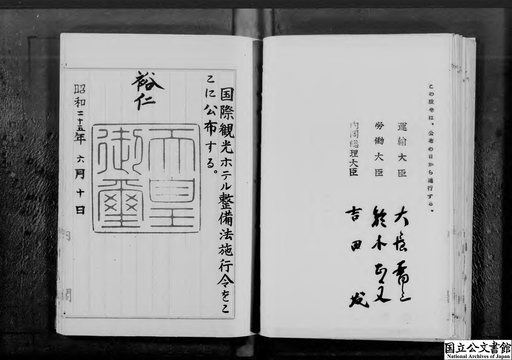 この政令は、公布の日から施行する。
運輸大臣 大屋晋三
労働大臣 鈴木正文
内閣総理大臣 吉田茂
国際観光ホテル整備法施行令をこ
こに公布する。
裕仁
天皇
御璽
昭和二十五年六月十日
国立公文書館
National Archives of Japan